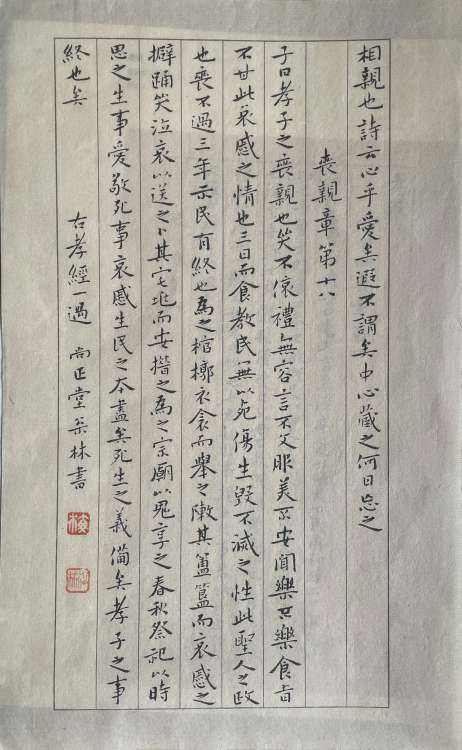 相親也詩云心乎愛矣遐不謂矣中心藏之何日忘之
喪親章第十八
子曰孝子之喪親也哭不偯禮無容言不文服美不安聞樂不樂食旨
不甘此哀慼之情也三日而食教民無以死傷生毀不滅之性此聖人之政
也喪不過三年示民有終也為之棺槨衣衾而舉之陳其簠簋而哀慼之
擗踊哭泣哀以送之卜其宅兆而安措之為之宗廟以鬼享之春秋祭祀以時
思之生事愛敬死事哀慼生民之本盡矣死生之義備矣孝子之事
終也矣 右孝經一過 尚正堂 林書